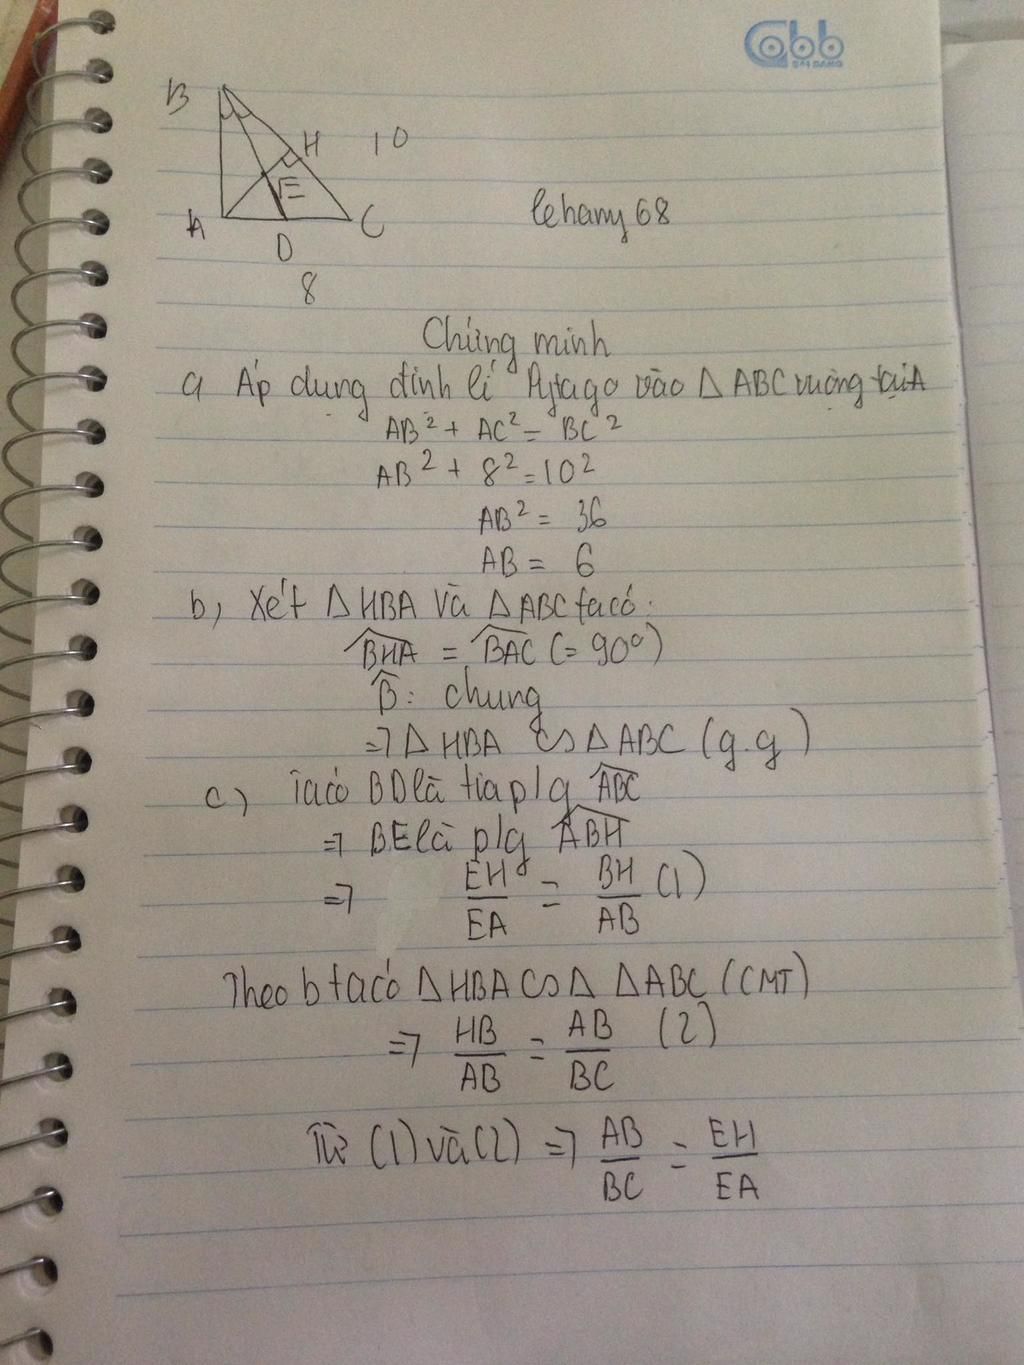 Cabb
B
H
10
E
A
D
C
lehamy68
8
Chứng minh
a Áp dụng định lí Pytago vào Δ ABC vuông tại A
AB² + AC² = BC²
AB² + 8² = 10²
AB² = 36
AB = 6
b, Xét Δ HBA và Δ ABC ta có:
BHA = BAC (= 90°)
B̂: chung
=> Δ HBA ∽ Δ ABC (g.g)
c, Ta có BD là tia p/g ABC
=> BE là p/g ABH
=> EH/EA = BH/AB (1)
Theo b ta có Δ HBA ∽ Δ Δ ABC (CMT)
=> HB/AB = AB/BC (2)
Từ (1) và (2) => AB/BC = EH/EA